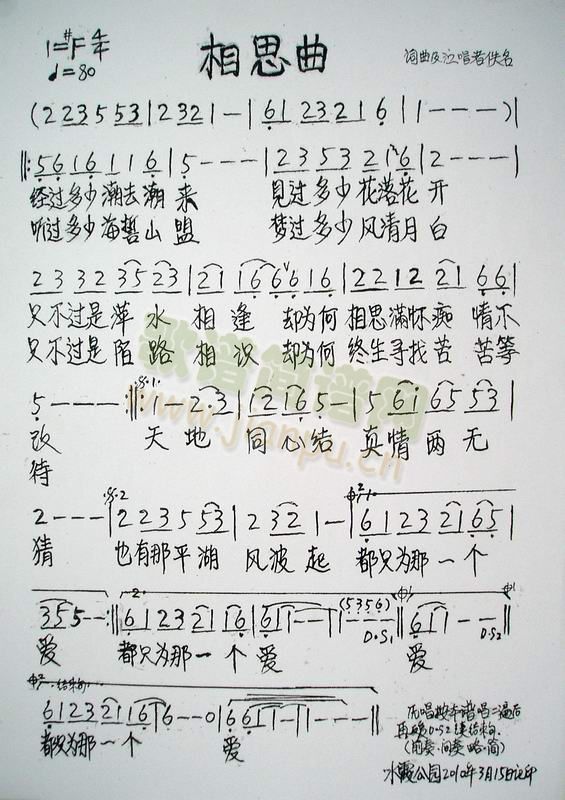 1=#F 4/4
♩=80
相思曲
词曲及泣唱者佚名
(2 2 3 5 5 3 | 2 3 2 1 — | 6 1 2 3 2 1 6 | 1 — — — )|
‖: 5 6 1 6 1 1 6 | 5 — — — | 2 3 5 3 2 1 6 | 2 — — — |
经过多少潮去潮来 见过多少花落花开
听过多少海誓山盟 梦过多少风清月白
2 3 3 2 3 5 2 3 | 2 1 1 6 6 6 1 6 | 2 2 1 2 2 1 6 6 |
只不过是萍水相逢 却为何相思满怀痴情不
只不过是陌路相识 却为何终生寻找苦苦等
5 — — — :‖ 1 — 2 3 | 1 2 1 6 5 — | 5 6 1 6 5 5 3 |
改 天地同心结 真情两无
待
2 — — — | 2 2 3 5 5 3 | 2 3 2 1 — | 6 1 2 3 2 1 6 5 |
猜 也有那平湖风波起 都只为那一个
3 5 5 — — :‖ 6 1 2 3 2 1 1 6 | 6 1 1 — — | 1 — — — ‖ 6 1 1 — — ‖
(5 3 5 6)
D.S1
D.S2
爱 都只为那一个爱 爱
结束句
6 1 2 3 2 1 1 6 | 6 — — 0 | 6 6 1 1 — | 1 — — — ‖
都只为那一个 爱
演唱按本谱唱二遍后
再唱D.S2接结束句
(前奏·间奏略·简)
水霞公园2010年3月15日记印
歌谱简谱网
www.jianpu.cn